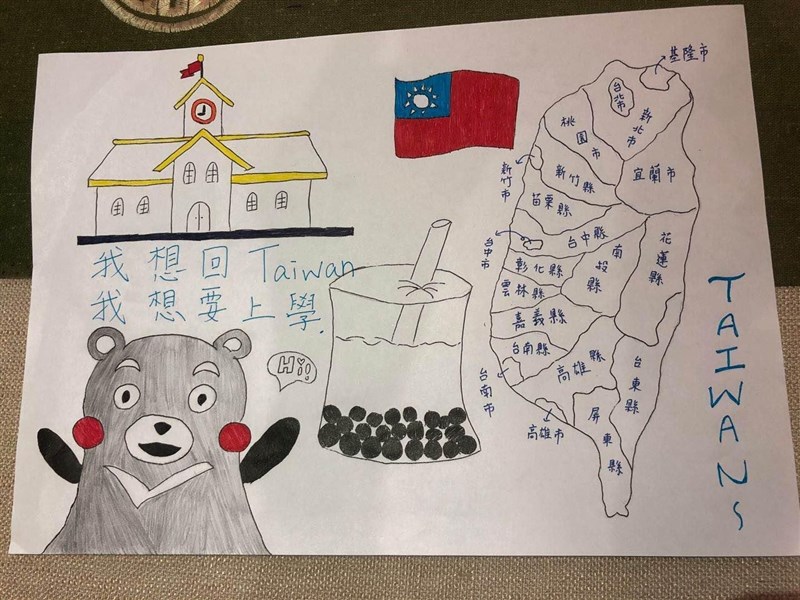 我想回Taiwan
我想要上學.
Hi!
基隆市
台北市
新北市
桃園市
宜蘭市
新竹市
新竹縣
苗栗縣
台中縣
台中市
南投縣
花蓮縣
彰化縣
雲林縣
嘉義縣
台南縣
台南市
高雄縣
高雄市
台東縣
屏東縣
TAIWAN~